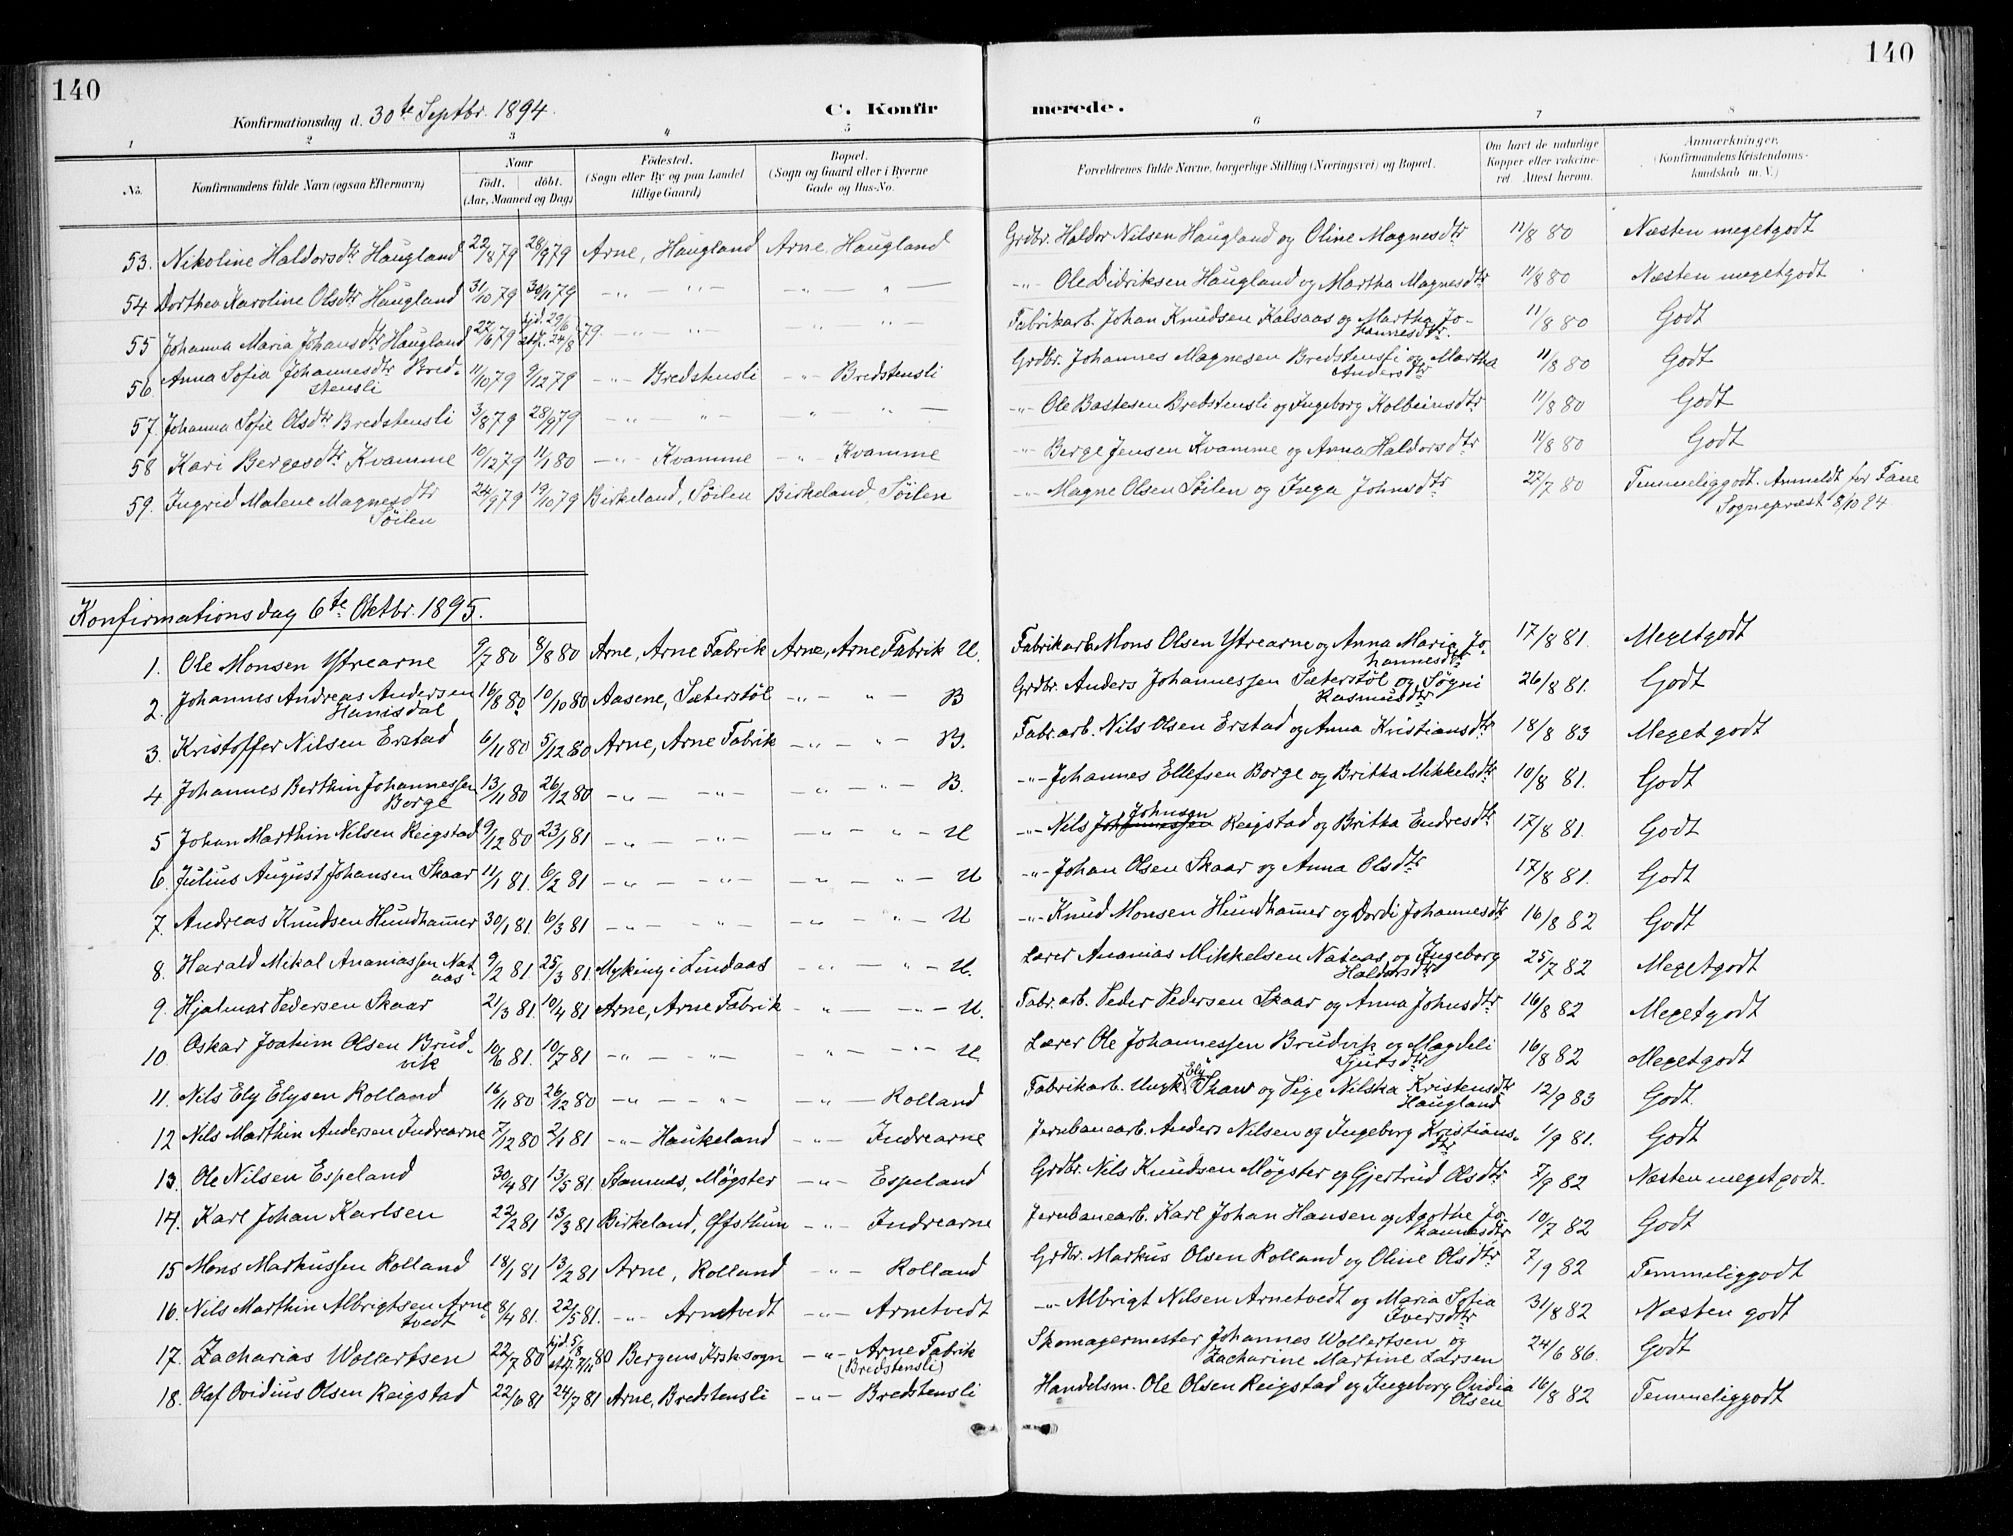 140
140
Konfirmationsdag d. 30te Septbr. 1894.
C. Konfirmerede.
1 2 3 4 5 6 7 8
No. Konfirmandens fulde Navn (ogsaa Efternavn) Naar født. døbt. (Aar, Maaned og Dag) Fødested. (Sogn eller By og paa Landet tillige Gaard) Bopæl. (Sogn og Gaard eller i Byerne Gade og Hus-No. Forældrenes fulde Navne, borgerlige Stilling (Næringsvei) og Bopæl. Om havt de naturlige Kopper eller vakcineret Attest herom. Anmærkninger. (Konfirmandens Kristendomskundskab m. V.)
53. Nikoline Haldorsdtr Haugland 22/8 79 28/9 79 Arne, Haugland Arne, Haugland Grdbr. Haldor Nilsen Haugland og Oline Magnesdtr 11/8 80 Næsten megetgodt
54 Dorthea Karoline Olsdtr Haugland 31/10 79 30/11 79 -"- -"- -"- " - -"- Ole Didriksen Haugland og Martha Magnesdtr 11/8 80 Næsten megetgodt
55 Johanna Maria Johansdtr Haugland 27/6 79 hjd. 29/6 st.f. 24/8 79 -"- -"- -"- "- Fabrikarb. Johan Knudsen Kalsaas og Martha Johannesdtr. 11/8 80 Godt
56. Anna Sofia Johannesdtr Bredstensli 11/10 79 9/12 79 -"- Bredstensli -"- Bredstensli Grdbr. Johannes Magnesen Bredstensli og Martha Andersdtr 11/8 80 Godt
57. Johanna Sofie Olsdtr Bredstensli 3/8 79 28/9 79 -"- "- -"- " - -"- Ole Bastesen Bredstensli og Ingeborg Kolbeinsdtr 11/8 80 Godt
58 Kari Bergesdtr Kvamme 10/12 79 11/1 80 -"- Kvamme -"- Kvamme -"- Berge Jensen Kvamme og Anna Haldorsdtr 11/8 80 Godt
59. Ingrid Malene Magnesdtr Söilen 24/9 79 19/10 79 Birkeland, Söilen Birkeland, Söilen -"- Magne Olsen Söilen og Inga Johnsdtr 27/7 80 Temmeliggodt. Anmeldt for Fane Sognepræst 8/10 94.
Konfirmationsdag 6te Oktbr. 1895.
1. Ole Monsen Ytrearne 9/7 80 8/8 80 Arne, Arne Fabrik Arne, Arne Fabrik U. Fabrikarb. Mons Olsen Ytrearne og Anna Maria Johannesdtr 17/8 81. Megetgodt
2. Johannes Andreas Andersen Hunisdal 16/8 80 10/10 80 Aasene, Sæterstöl -"- -"- B Grdbr. Anders Johannessen Sæterstöl og Søgni Rasmusdtr 26/8 81. Godt
3. Kristoffer Nilsen Erstad 6/11 80 5/12 80 Arne, Arne Fabrik -"- -"- B. Fabr. arb. Nils Olsen Erstad og Anna Kristiansdtr 18/8 83 Megetgodt
4 Johannes Berthin Johannessen Borge 13/11 80 26/12 80 -"- -"- -"- -"- B. -"- Johannes Ellefsen Borge og Britha Mikkelsdtr 10/8 81. Godt
5 Johan Marthin Nilsen Reigstad 9/12 80 23/1 81 -"- -"- -"- -"- U -"- Nils Johannessen Johnsen Reigstad og Britha Endresdtr 17/8 81. Godt
6. Julius August Johansen Skaar 11/1 81. 6/2 81 -"- -"- -"- -"- U -"- Johan Olsen Skaar og Anna Olsdtr 17/8 81. Godt
7. Andreas Knudsen Hundhamer 30/1 81. 6/3 81 -"- -"- -"- -"- U -"- Knud Monsen Hundhamer og Dordi Johannesdtr 16/8 82 Godt
8. Harald Mikal Ananiassen Nataas 9/2 81. 25/3 81 Myking i Lindaas -"- -"- U. Lærer Ananias Mikkelsen Nataas og Ingeborg Haldorsdtr 25/7 82 Megetgodt
9. Hjalmar Pedersen Skaar 21/3 81. 10/4 81 Arne, Arne Fabrik -"- -"- U. Fabr. arb. Peder Pedersen Skaar og Anna Johnsdtr 16/8 82 Megetgodt
10. Oskar Joakim Olsen Brudvik 10/6 81. 10/7 81 -"- -"- -"- -"- U Lærer Ole Johannessen Brudvik og Magdeli Sjursdtr 16/8 82 Megetgodt
11. Nils Ely Elysen Rolland 16/11 80 26/12 80 -"- -"- -"- Rolland Fabrikarb. Ungk. Ely Skaar og Pige Nilska Kristensdtr Haugland 12/9 83 Godt
12 Nils Marthin Andersen Indrearne 7/12 80 2/1 81 -"- Haukeland -"- Indrearne Jernbanearb. Anders Nilsen og Ingeborg Kristiansdtr 1/9 81. Godt
13. Ole Nilsen Espeland 30/4 81 13/5 81 Stamnes, Mögster -"- Espeland Grdbr. Nils Knudsen Mögster og Gjertrud Olsdtr 7/9 82 Næsten megetgodt.
14. Karl Johan Karlsen 22/2 81 13/3 81 Birkeland, Øfsthun -"- Indrearne Jernbanearb. Karl Johan Hansen og Agothe Johannesdtr 10/7 82 Godt
15 Mons Markussen Rolland 18/1 81 13/2 81 Arne, Rolland -"- Rolland Grdbr. Markus Olsen Rolland og Oline Olsdtr 7/9 82 Temmeliggodt
16. Nils Marthin Albrigtsen Arnetvedt 8/4 81. 22/5 81. -"- Arnetvedt -"- Arnetvedt -"- Albrigt Nilsen Arnetvedt og Maria Sofia Iversdtr 31/8 82 Næsten godt
17. Zacharias Wollertsen 22/7 80 hjd. 5/8 st.f. 7/11 80 Bergens Krsksogn -"- Arne Fabrik (Bredstensli) Skomagermester Johannes Wollertsen og Zacharine Martine Larsen 24/6 86. Godt
18. Olaf Ovidius Olsen Reigstad 22/6 81 24/7 81 Arne, Bredstensli -"- Bredstensli Handelsm. Ole Olsen Reigstad og Ingeborg Ovidia Olsen 16/8 82 Temmeliggodt